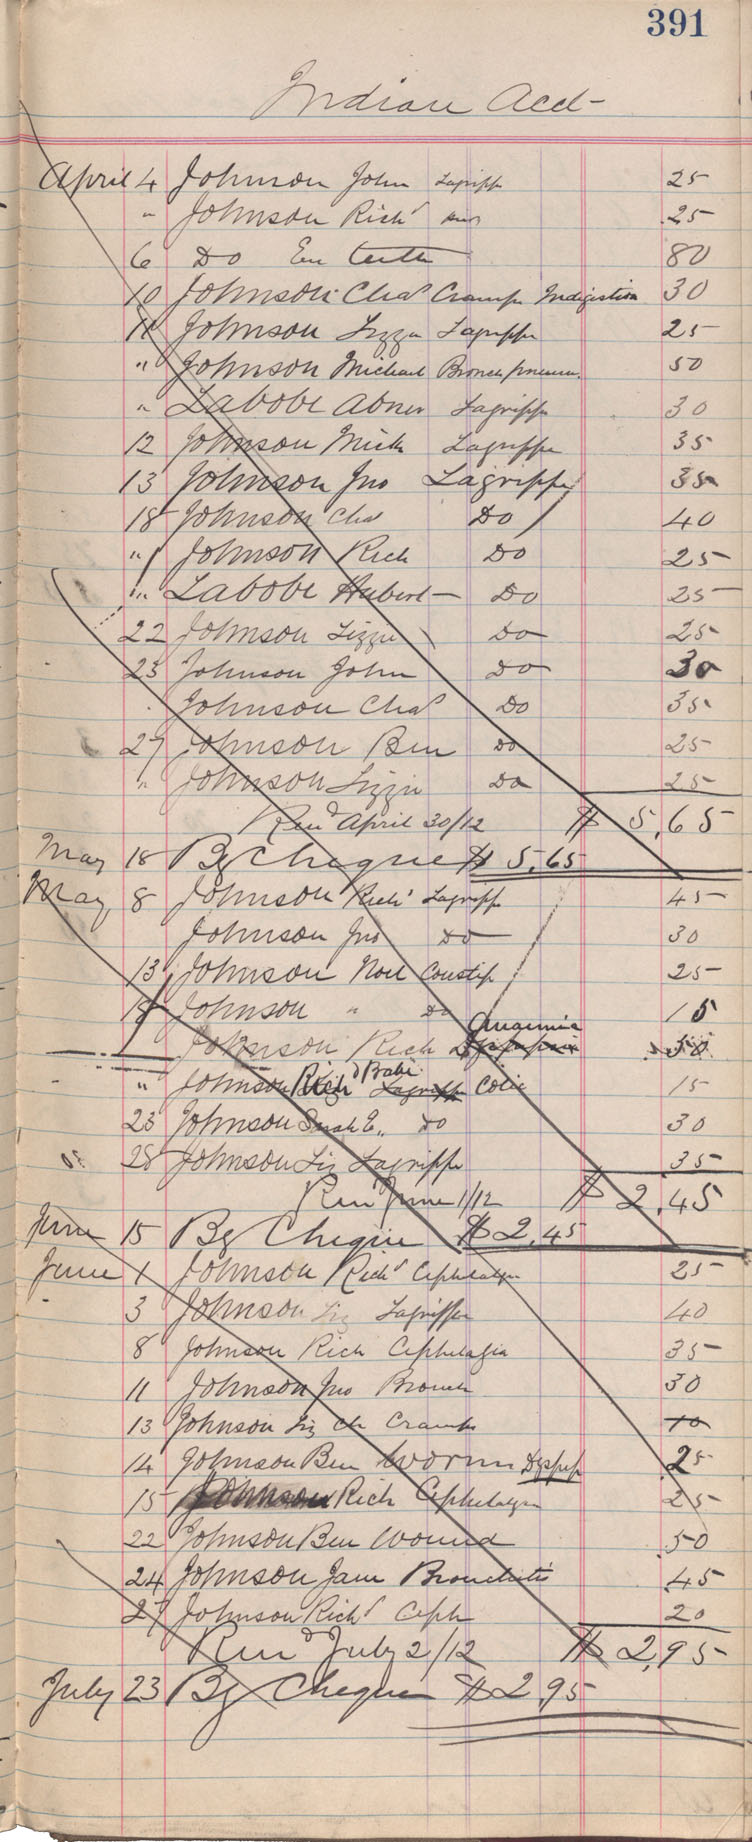 391
Indian Acct
April 4 Johnson John Lagripp 25
" Johnson Richd 25
6 Do Em teeth 80
10 Johnson Chas Cramps Indigestion 30
11 Johnson Lizzie Lagrippe 25
" Johnson Michael Bronch pneum. 50
" Labobe Abner Lagrippe 30
12 Johnson Mich Lagrippe 35
13 Johnson Jno Lagrippe 35
18 Johnson Chas Do 40
" Johnson Rich Do 25
" Labobe Hubert Do 25
22 Johnson Lizzie Do 25
23 Johnson John Do 30
Johnson Chas Do 35
27 Johnson Ben Do 25
" Johnson Lizzie Do 25
Rend April 30/12 $ 5.65
May 18 By Cheque $ 5.65
May 8 Johnson Richd Lagripp 45
Johnson Jno Do 30
13 Johnson Noel Constip 25
18 Johnson " Do 15
Johnson Rich Anaemia 50
" Johnson Richd Babe Lagrippe Colic 15
23 Johnson Sarah E. Do 30
28 Johnson Liz Lagrippe 35
Ren June 1/12 $ 2.45
June 15 By Cheque $ 2.45
June 1 Johnson Richd Cephelalgia 25
3 Johnson Liz Lagrippe 40
8 Johnson Rich Cephelalgia 35
11 Johnson Jno Bronch 30
13 Johnson Liz Ch Cramps 10
14 Johnson Ben Worms Dyspep 25
15 Johnson Rich Cephelalgia 25
22 Johnson Ben Wound 50
24 Johnson Jane Bronchitis 45
27 Johnson Richd Ceph 20
Rend July 2/12 $ 2.95
July 23 By Cheque $ 2.95